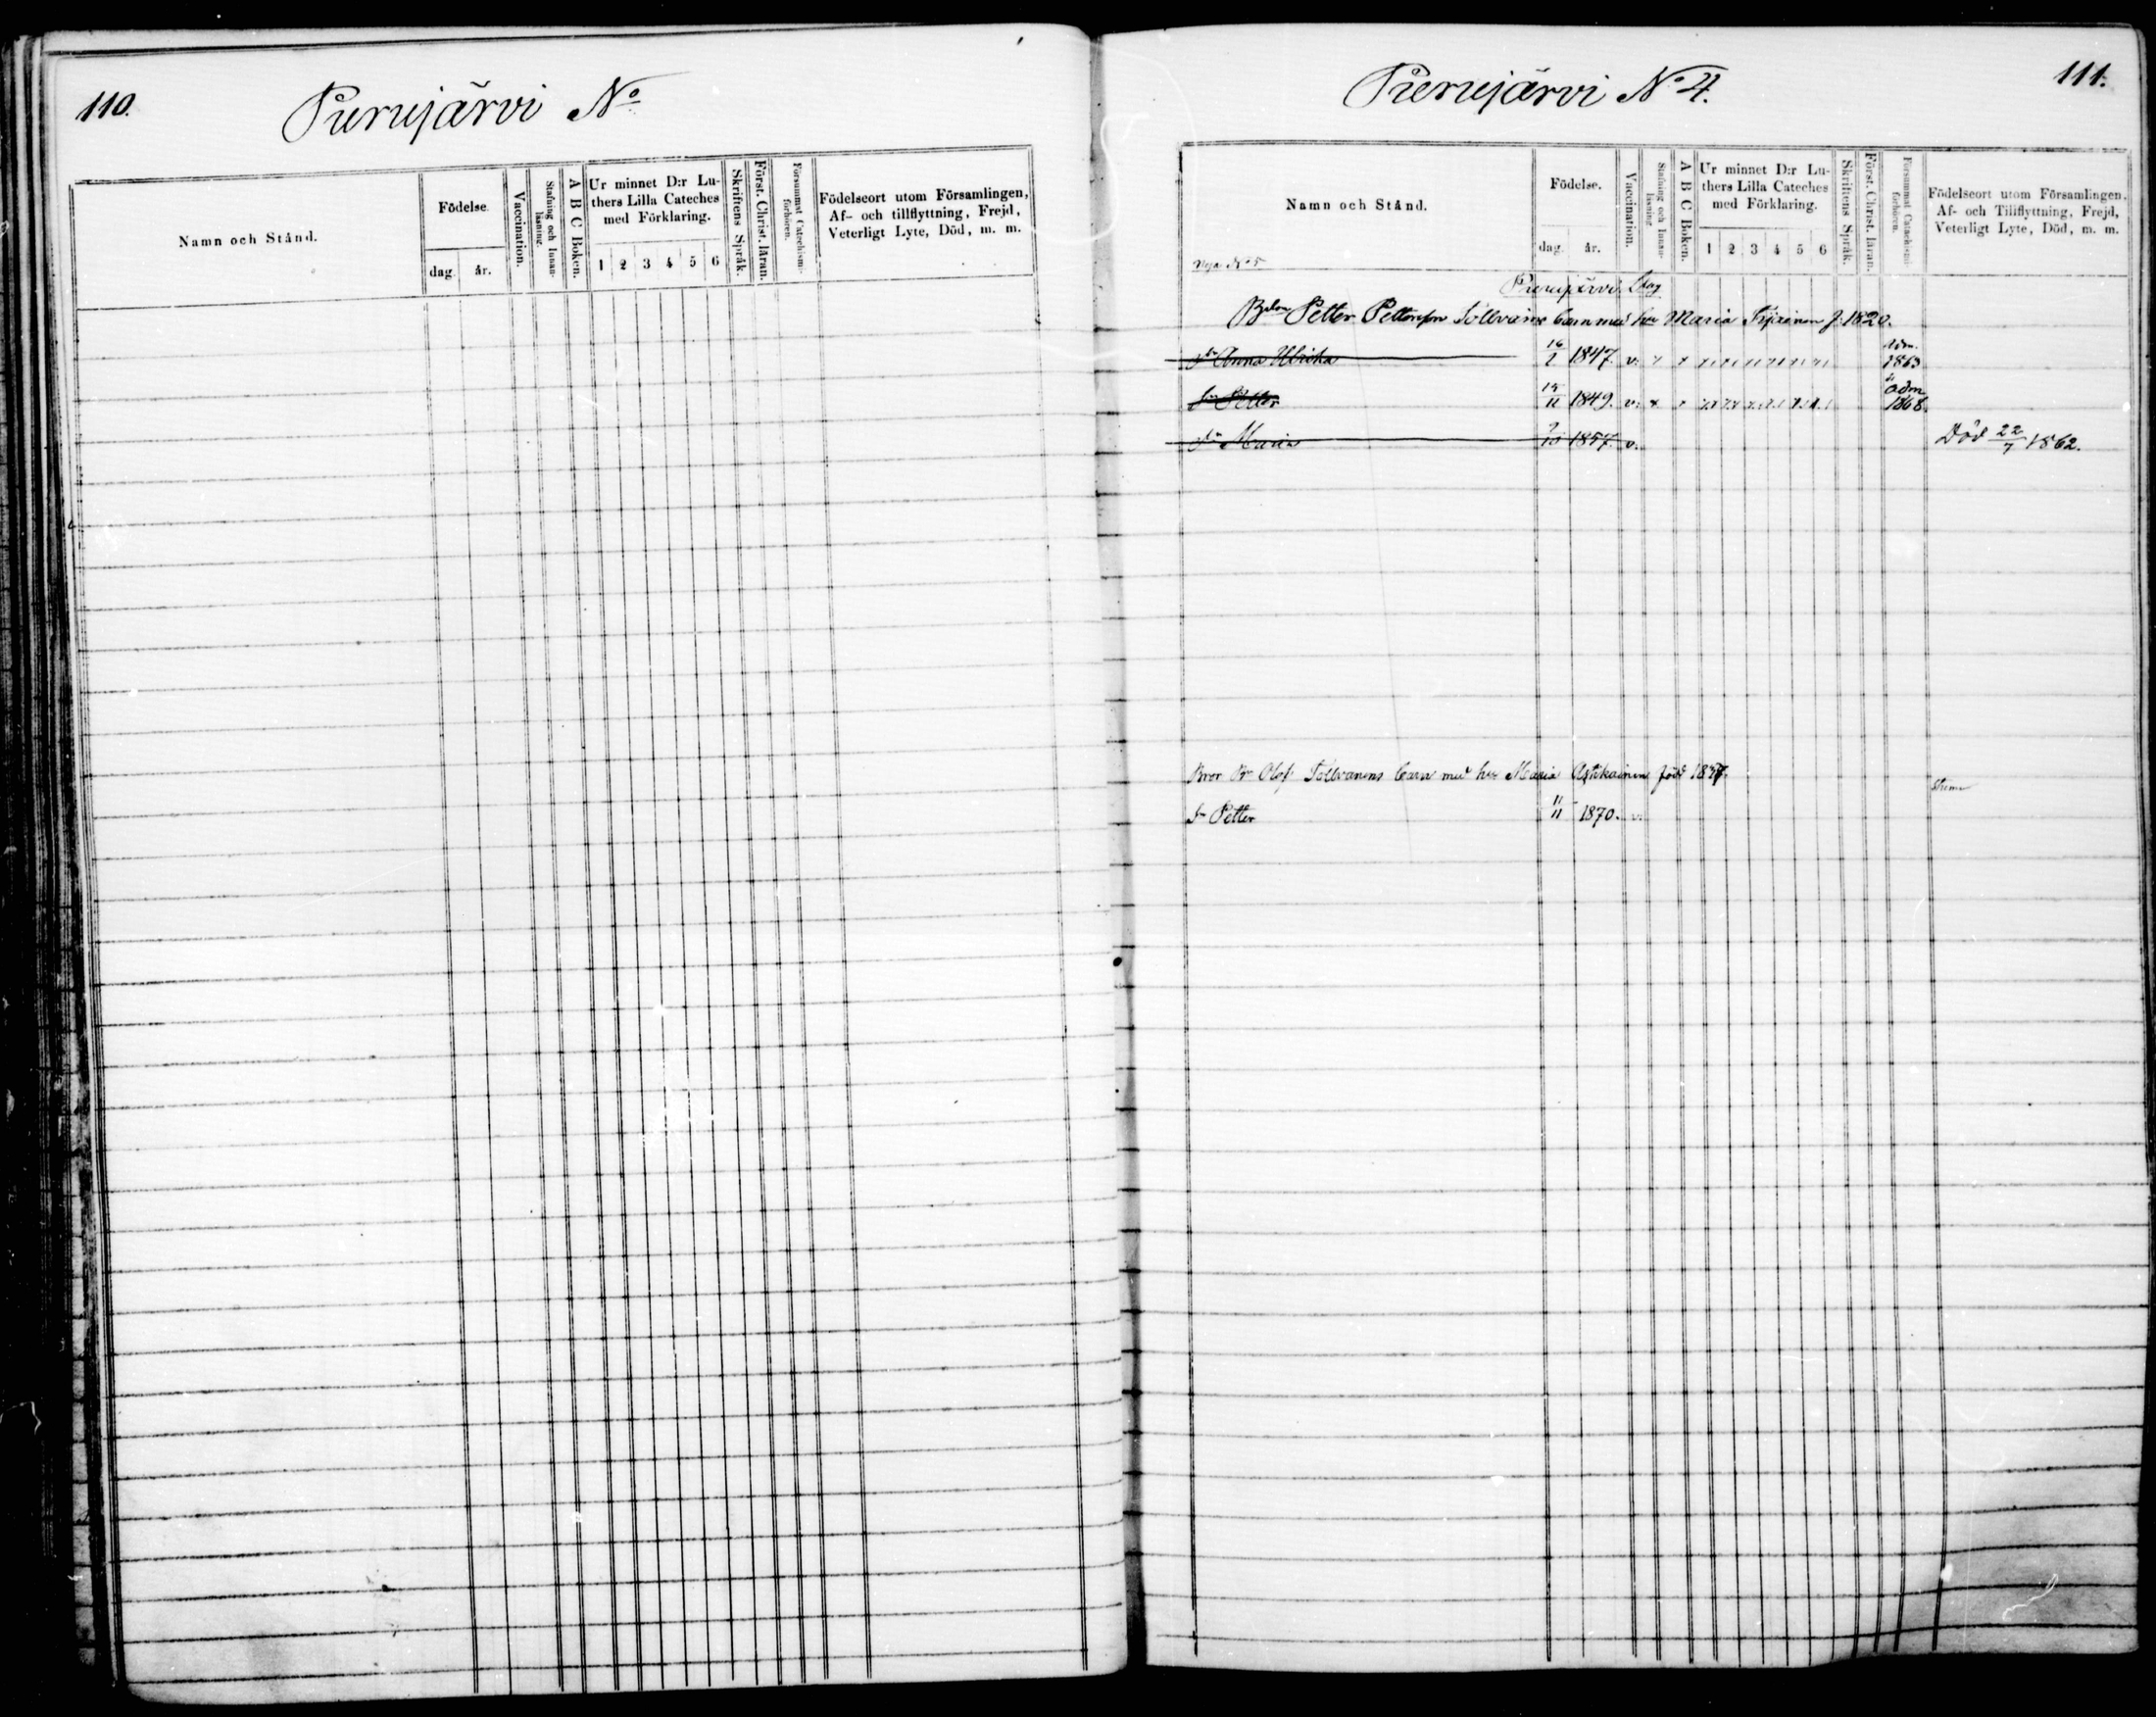 110.
Purnujärvi No
Namn och Stånd.
Födelse.
dag.
år.
Vaccination.
Stafning och Innan-
läsning.
A B C Boken.
Ur minnet D:r Lu-
thers Lilla Cateches
med Förklaring.
1 2 3 4 5 6
Skriftens Språk.
Först. Christ. läran.
Försummat Catechismi-
förhören.
Födelseort utom Församlingen,
Af- och tillflyttning, Frejd,
Veterligt Lyte, Död, m. m.
Purnujärvi No 4.
111.
Namn och Stånd.
Födelse.
dag.
år.
Vaccination.
Stafning och Innan-
läsning.
A B C Boken.
Ur minnet D:r Lu-
thers Lilla Cateches
med Förklaring.
1 2 3 4 5 6
Skriftens Språk.
Först. Christ. läran.
Försummat Catechismi-
förhören.
Födelseort utom Församlingen,
Af- och Tillflyttning, Frejd,
Veterligt Lyte, Död, m. m.
No 5
Purnujärvi
Petter Petterson Tollvaine barn med hu Maria f. 1820.
dr Anna Ulrika 16/2 1847. v. 1863
sn Petter 15/11 1849. v. adm 1868
dr Maria 9/10 1857. v. Död 22/7 1862.
Bror Br Olof Tollvanens barn med hu Maria född
sn Petter 11/11 1870. v.